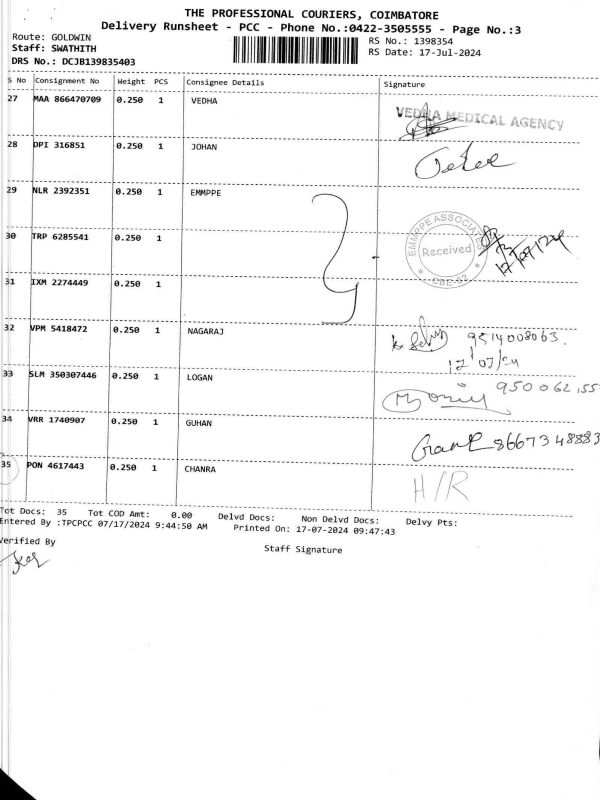 THE PROFESSIONAL COURIERS, COIMBATORE
Delivery Runsheet - PCC - Phone No.:0422-3505555 - Page No.:3
Route: GOLDWIN
Staff: SWATHITH
DRS No.: DCJB139835403
RS No.: 1398354
RS Date: 17-Jul-2024
S No Consignment No Weight PCS Consignee Details Signature
27 MAA 866470709 0.250 1 VEDHA
VEDHA MEDICAL AGENCY
28 DPI 316851 0.250 1 JOHAN
29 NLR 2392351 0.250 1 EMMPPE
EMMPPE ASSOCIATES
Received
CBE-62
17/07/24
30 TRP 6285541 0.250 1
31 IXM 2274449 0.250 1
32 VPM 5418472 0.250 1 NAGARAJ
9514008063.
17/07/24
33 SLM 350307446 0.250 1 LOGAN
950062,55
34 VRR 1740907 0.250 1 GUHAN
8667348883
35 PON 4617443 0.250 1 CHANRA
H/R
Tot Docs: 35 Tot COD Amt: 0.00 Delvd Docs: Non Delvd Docs: Delvy Pts:
Entered By :TPCPCC 07/17/2024 9:44:50 AM Printed On: 17-07-2024 09:47:43
Verified By
Staff Signature